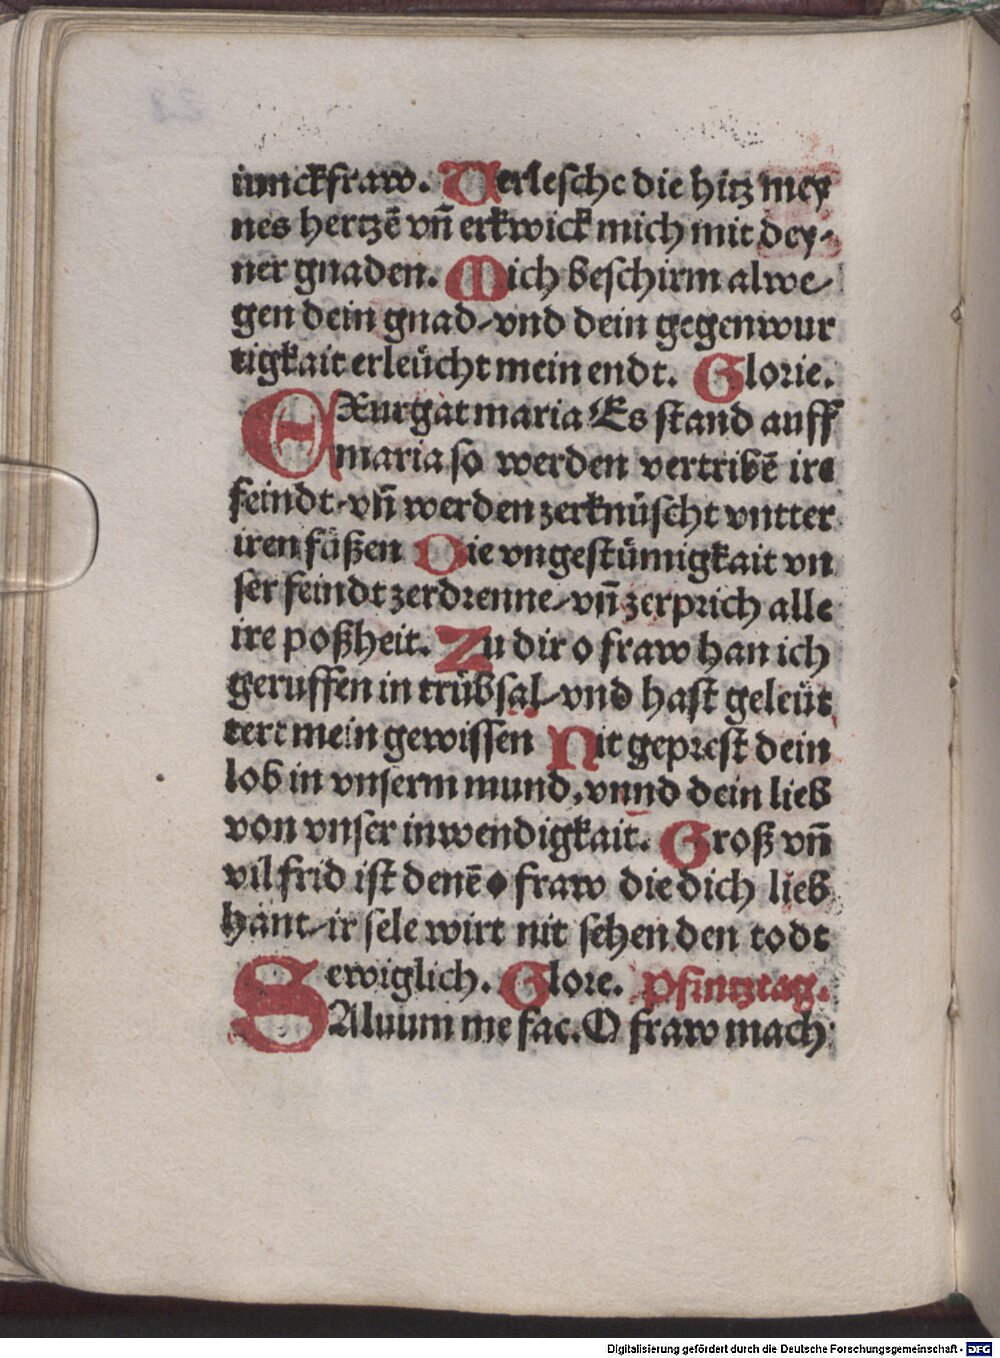 iunckfraw. Verlesche die hitz mey
nes hertzē vn̄ erkwick mich mit dey-
ner gnaden. Mich beschirm alwe-
gen dein gnad/vnd dein gegenwur
tigkait erleücht mein endt. Glorie.
EXurgat maria Es stand auff
maria so werden vertribē ire
feindt/vn̄ werden zerknüscht vntter
iren füßen Die vngestümigkait vn
ser feindt zerdrenne/vn̄ zerprich alle
ire poßheit. Zu dir o fraw han ich
geruffen in trübsal/vnd hast geleüt
tert mein gewissen Nit geprest dein
lob in vnserm mund, vnnd dein lieb
von vnser inwendigkait. Groß vn̄
vil frid ist denē o fraw die dich lieb
hant/ir sele wirt nit sehen den todt
ewiglich. Glore. Pfintztag.
SAluum me fac. O fraw mach
Digitalisierung gefördert durch die Deutsche Forschungsgemeinschaft - DFG